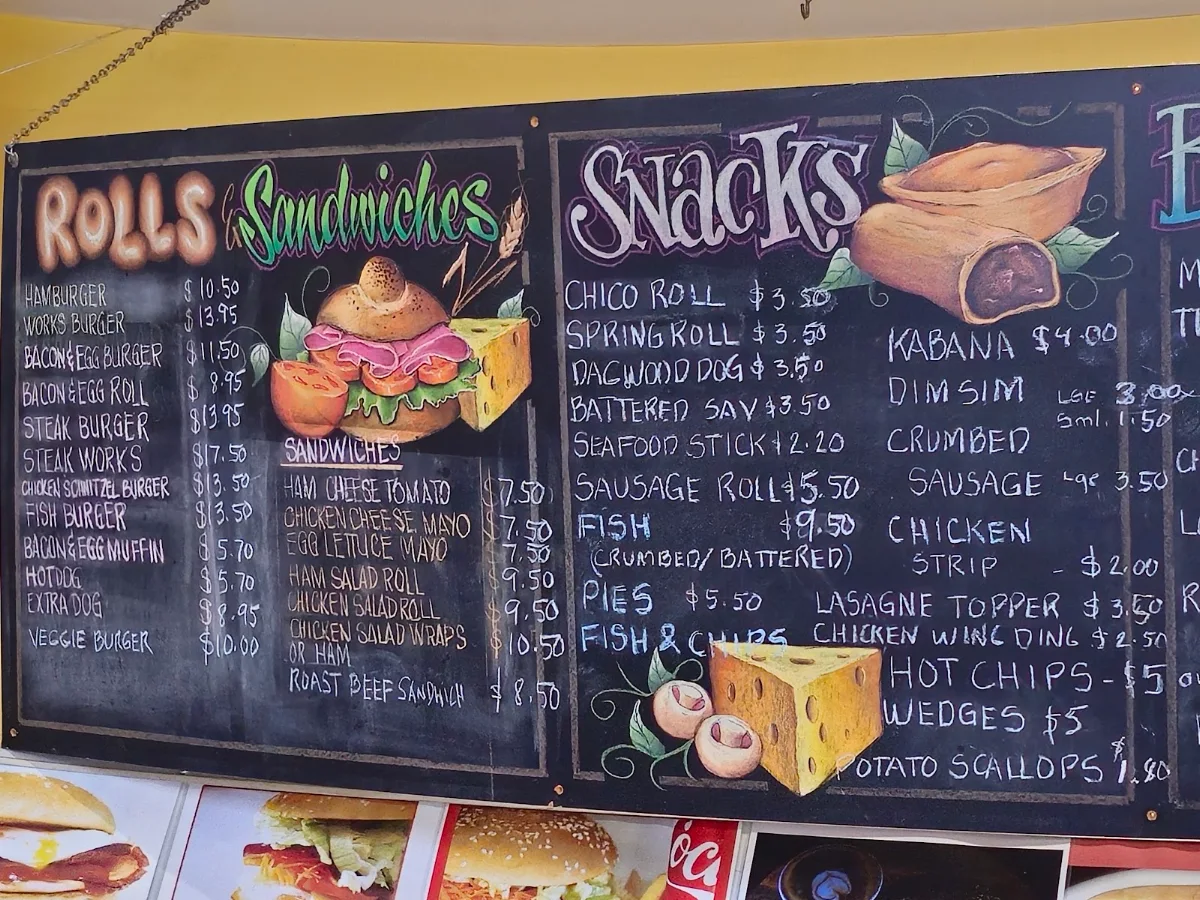 ROLLS & Sandwiches
HAMBURGER $10.50
WORKS BURGER $13.95
BACON & EGG BURGER $11.50
BACON & EGG ROLL $8.95
STEAK BURGER $13.95
STEAK WORKS $17.50
CHICKEN SCHNITZEL BURGER $13.50
FISH BURGER $13.50
BACON & EGG MUFFIN $5.70
HOTDOG $5.70
EXTRA DOG $8.95
VEGGIE BURGER $10.00
SANDWICHES
HAM CHEESE TOMATO $7.50
CHICKEN CHEESE MAYO $7.50
EGG LETUCE MAYO 7.50
HAM SALAD ROLL $9.50
CHICKEN SALAD ROLL $9.50
CHICKEN SALAD WRAPS $10.50
OR HAM
ROAST BEEF SANDWICH $8.50
SNACKS
CHICO ROLL $3.50
SPRING ROLL $3.50
DAGWOOD DOG $3.50
BATTERED SAV $3.50
SEAFOOD STICK $2.20
SAUSAGE ROLL $5.50
FISH $9.50
(CRUMBED/BATTERED)
PIES $5.50
FISH & CHIPS
KABANA $4.00
DIM SIM LGE 3.00
Sml. 1.50
CRUMBED
SAUSAGE Lge 3.50
CHICKEN
STRIP - $2.00
LASAGNE TOPPER $3.50
CHICKEN WING DING $2.50
HOT CHIPS - $5
WEDGES $5
POTATO SCALLOPS $1.80